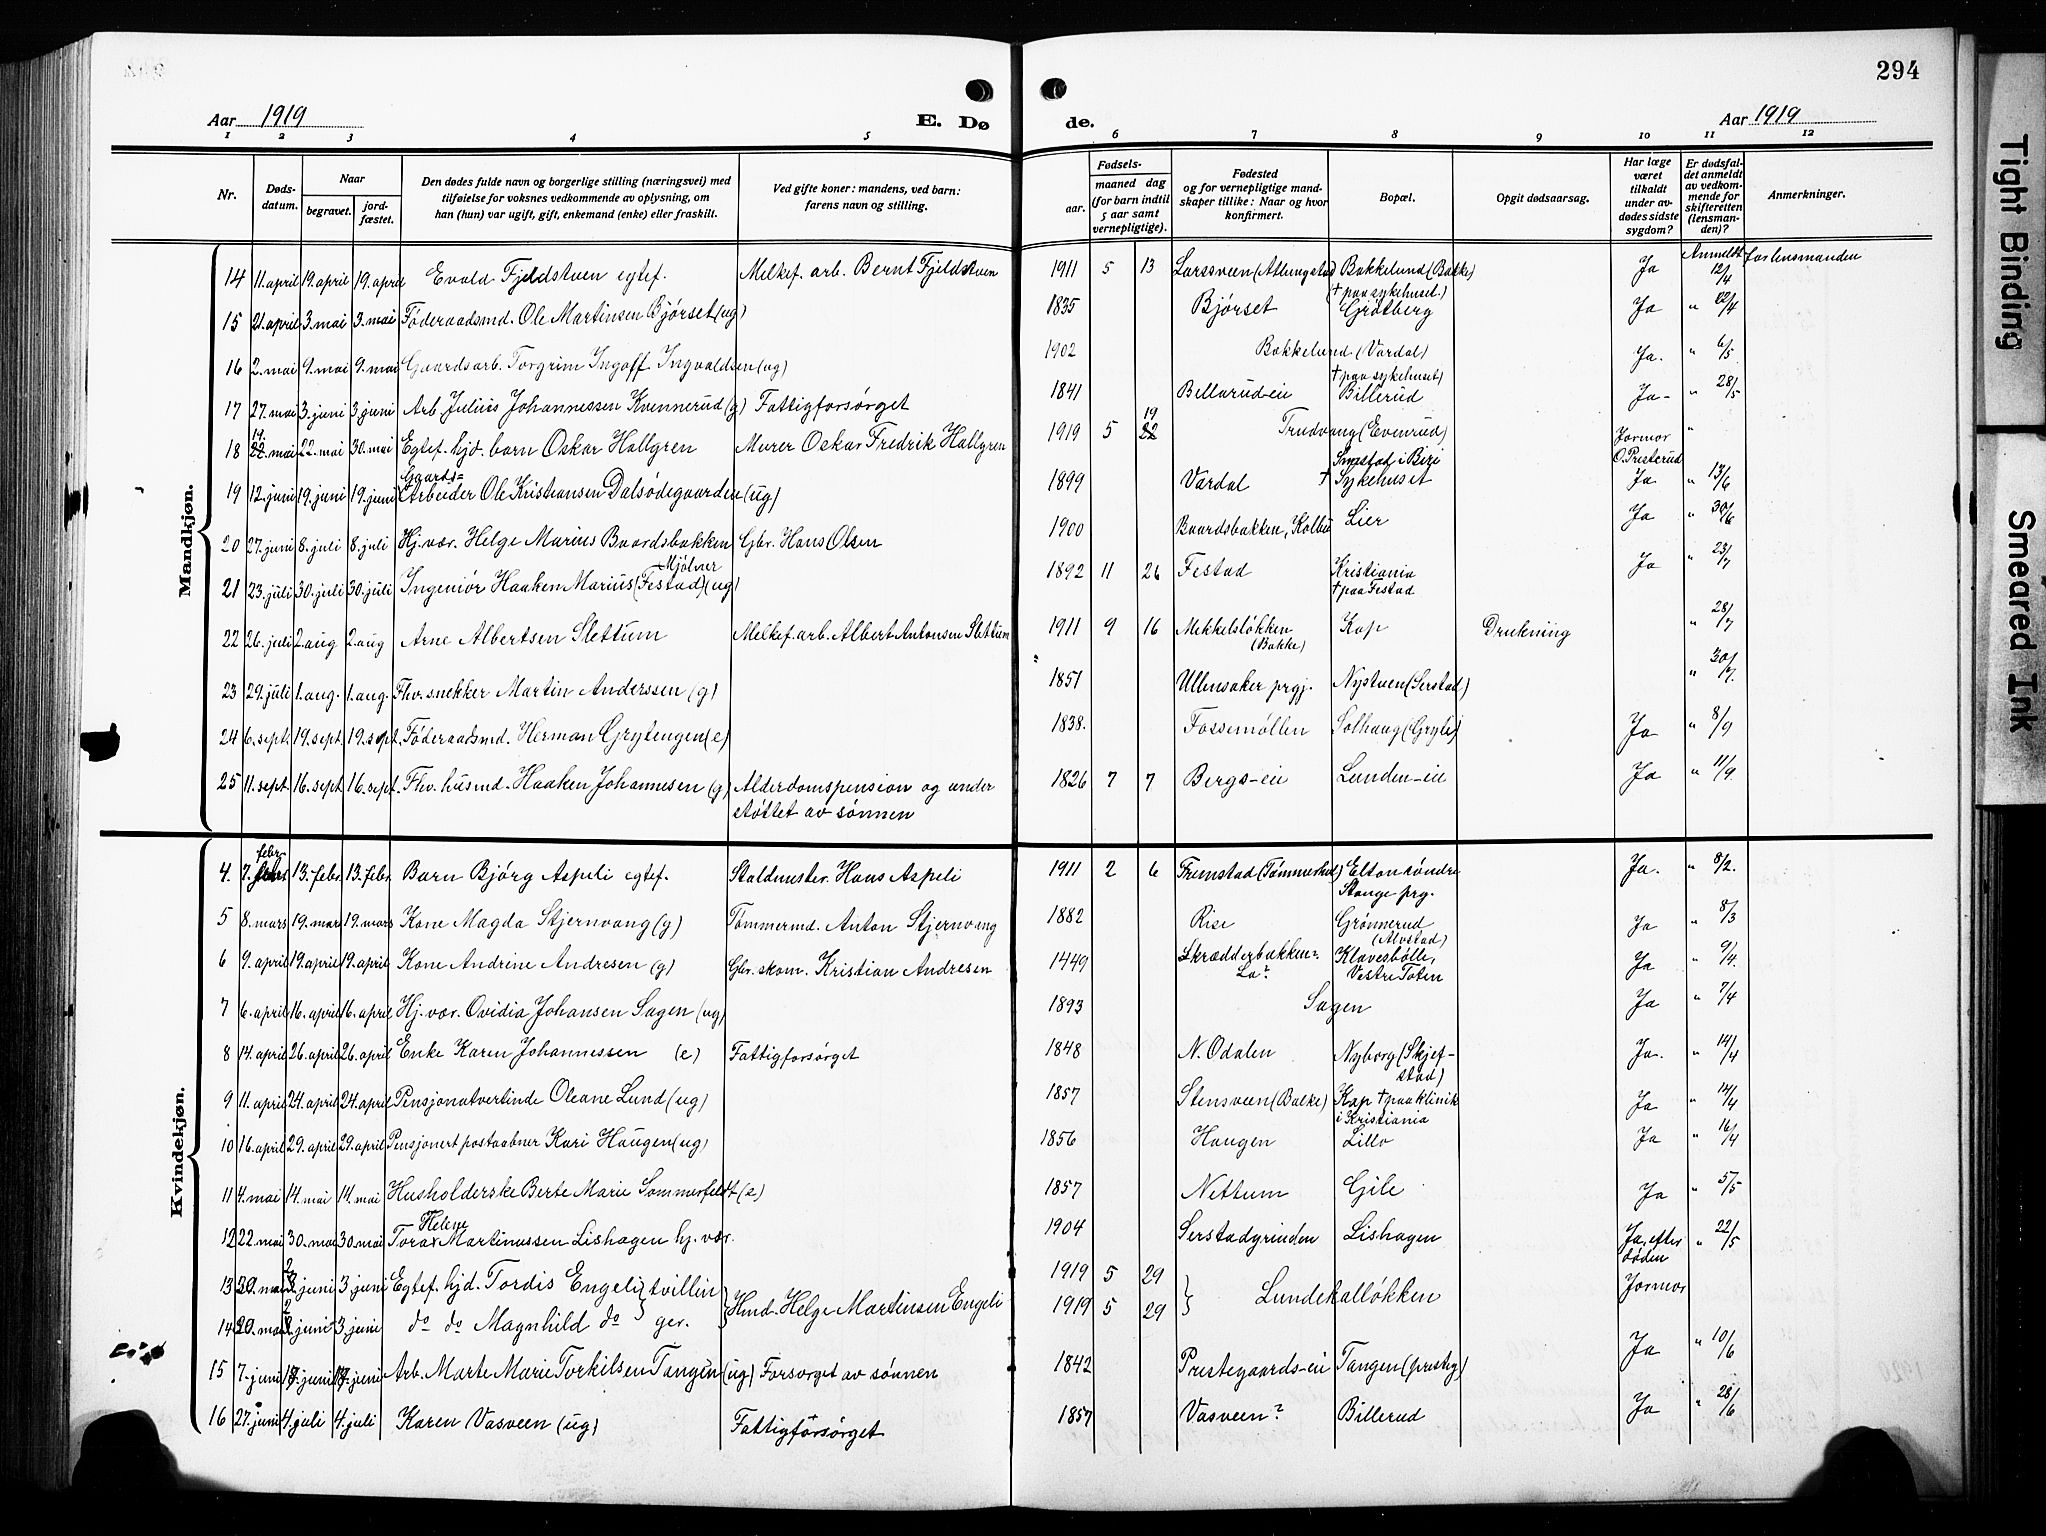 294
Aar 1919 E. Dø de. Aar 1919
1 2 3 4 5 6 7 8 9 10 11 12
Nr. Døds-datum. Naar begravet. jord-fæstet. Den dødes fulde navn og borgerlige stilling (næringsvei) med tilføielse for voksnes vedkommende av oplysning, om han (hun) var ugift, gift, enkemand (enke) eller fraskilt. Ved gifte koner: mandens, ved barn: farens navn og stilling. Fødsels- aar. maaned dag (for barn indtil 5 aar samt vernepligtige). Fødested og for vernepligtige mand-skaper tillike: Naar og hvor konfirmert. Bopæl. Opgit dødsaarsag. Har læge været tilkaldt under av-dødes sidste sygdom? Er dødsfal-det anmeldt av vedkom-mende for skifteretten (lensman-den)? Anmerkninger.
Mandkjøn.
14 11. april 19. april 19. april Evald Fjeldstuen egtef. Melkef. arb. Bernt Fjeldstuen 1911 5 13 Larssveen (Allungstad) Bakkelund (Bakke) († paa sykehuset.) Ja Anmeldt for lensmanden 12/4
15 21. april 3. mai 3. mai Føderaadsmd. Ole Martinsen Bjørset (ug) 1835 Bjørset Grøtberg Ja " 22/4
16 2. mai 9. mai 9. mai Gaardsarb. Torgrim Ingolf Ingvaldsen (ug) 1902 Bakkelund (Vardal) † paa sykehuset) Ja. " 6/5
17 27. mai 3. juni 3. juni Arb. Julius Johannessen Kvennerud (g) Fattigforsørget 1841 Billerud-eie Billerud Ja- " 28/5
18 19. 22. mai 22. mai 30. mai Egtef. hjd. barn Oskar Hallgren Murer Oskar Fredrik Hallgren 1919 5 19 22 Trudvang (Evenrud) Jormor O. Presterud "
19 12. juni 19. juni 19. juni Gaards= Arbeider Ole Kristiansen Dalsødegaarden (ug) 1899 Vardal Smestad i Biri † Sykehuset Ja " 13/6
20 27. juni 8. juli 8. juli Hj. vær. Helge Marius Baardsbakken Gbr. Hans Olsen 1900 Baardsbakken, Kolbu Lier Ja " 30/6
21 23. juli 30. juli 30. juli Ingeniør Haaken Marius Mjølner (Festad) (ug) 1892 11 26 Festad Kristiania † paa Festad Ja " 23/7
22 26. juli 2. aug 2. aug Arne Albertsen Slettum Melkef. arb. Albert Antonsen Slettum 1911 9 16 Mekkelsløkken (Bakke) Kap Drukning " 28/7
23 29. juli 1. aug. 1. aug. Fhv. snekker Martin Anderssen (g) 1851 Ullensaker prgj. Nystuen (Serstad) " 30/7
24 6. sept. 19. sept. 19. sept. Føderaadsmd. Herman Grytengen (e) 1838. Fossemøllen Solhaug (Gryte) Ja " 8/9
25 11. sept 16. sept 16. sept. Fhv. husmd. Haaken Johannesen (g) Alderdomspension og under støttet av sønnen 1826 7 7 Bergs-eie Lunden-eie Ja " 11/9.
Kvindekjøn.
4. 7. febr. 13. febr. 13. febr. Barn Bjørg Aspeli egtef. Staldmester. Hans Aspeli 1911 2 6 Fremstad (Tømmerhol) Elton søndre Stange prg. Ja. " 8/2.
5 8. mars 19. mars 19. mars Kone Magda Stjernvang (g) Tømmermd. Anton Stjernvang 1882 Rise Grønnerud (Alvstad) Ja " 8/3
6 9. april 19. april 19. april Kone Andrine Andresen (g) Gbr. skom. Kristian Andresen 1449 Skrædderbakken= La? Klavesbølle, Vestre Toten Ja " 9/4.
7 6. april 16. april 16. april Hj. vær. Ovidia Johansen Sagen (ug) 1893 Sagen Ja " 7/4
8 14. april 26. april 26. april Enke Karen Johannessen (e) Fattigforsørget 1848 N. Odalen Nyborg (Skjef-stad) Ja. " 14/4
9 11. april 24. april 24. april Pensjonatvertinde Oleane Lund (ug) 1857 Stensveen (Balke) Kap † paa klinik i Kristiania Ja " 14/4
10 16. april 29. april 29. april Pensjonert postaabner Kari Haugen (ug) 1856 Haugen Lillo Ja " 16/4
11 4. mai 14. mai 14. mai Husholderske Berte Marie Sommerfeldt (e) 1857 Nettum Gile Ja " 5/5
12 22. mai 30. mai 30. mai Tora Helene Martinussen Lishagen hj. vær. 1904 Serstadgrinden Lishagen Ja, efter døden " 22/5
13 29. mai 3. juni 3. juni Egtef. hjd. Tordis Engeli tvillin 1919 5 29 Jormor
14 29. mai 3. juni 3. juni do do Magnhild do ger. Hmd. Helge Martinsen Engeli 1919 5 29 Lundehalløkken
15 7. juni 17. juni 17. juni Arb. Marte Marie Torkilsen Tangen (ug) Forsørget av sønnen 1842 Prestegaards-eie Tangen (presteg) Ja " 10/6
16 27. juni 4. juli 4. juli Karen Vasveen (ug) Fattigforsørget 1857 Vasveen? Billerud Ja " 28/6
Tight Binding
Smeared Ink